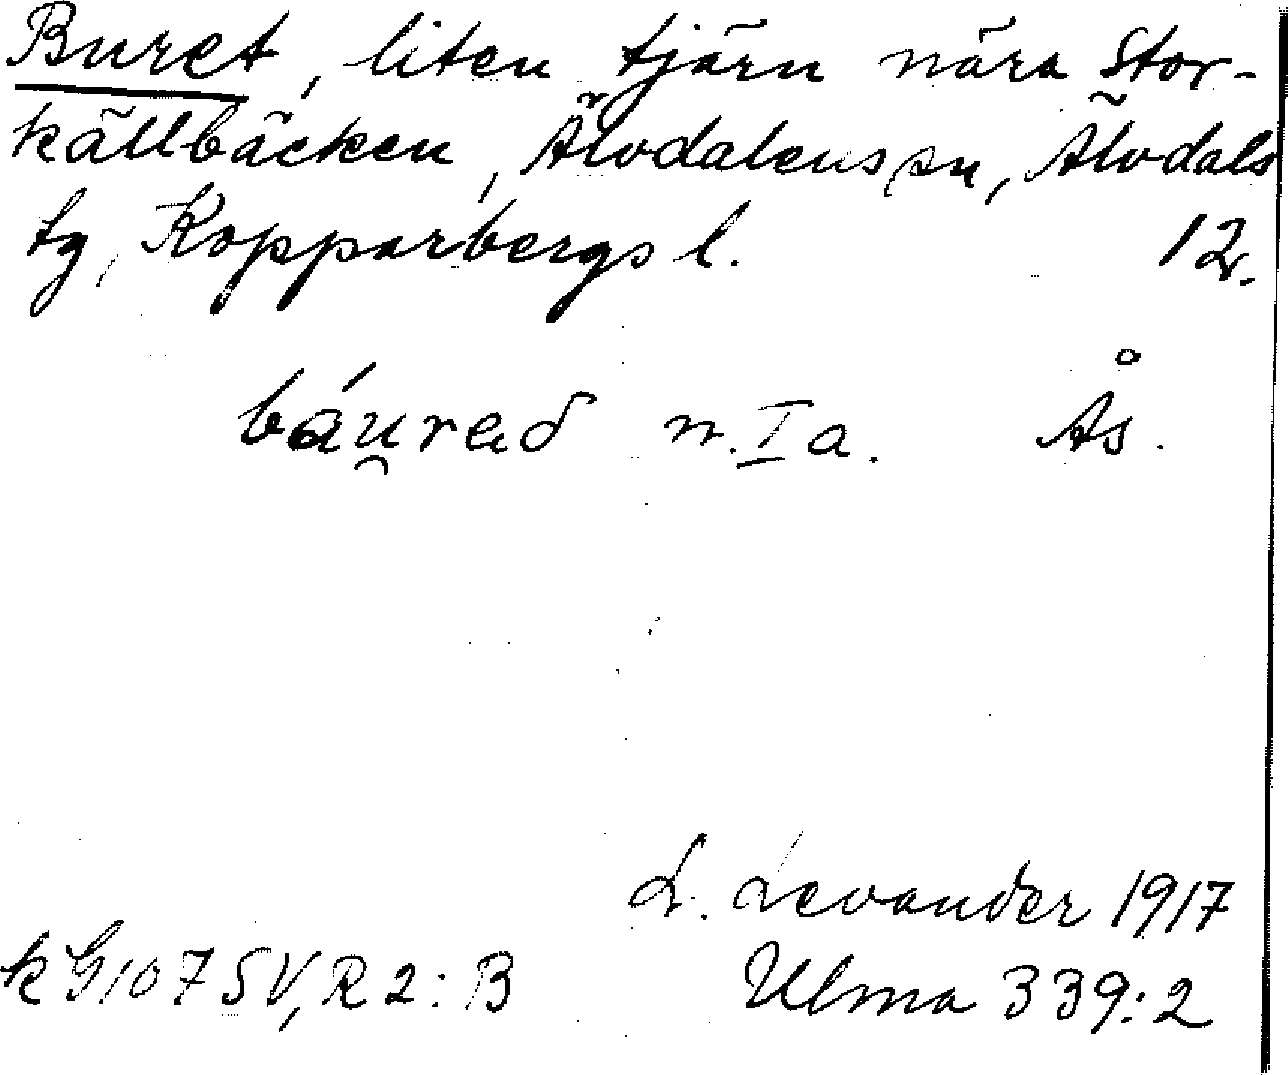 Buret, liten tjärn nära Stor-
källbäcken, Älvdalens sn, Älvdals
tg, Kopparbergs l. 12.
báu̯rað n. I a. Ås.
L. Levander 1917
k G 107 SV, R 2: B Ulma 339:2